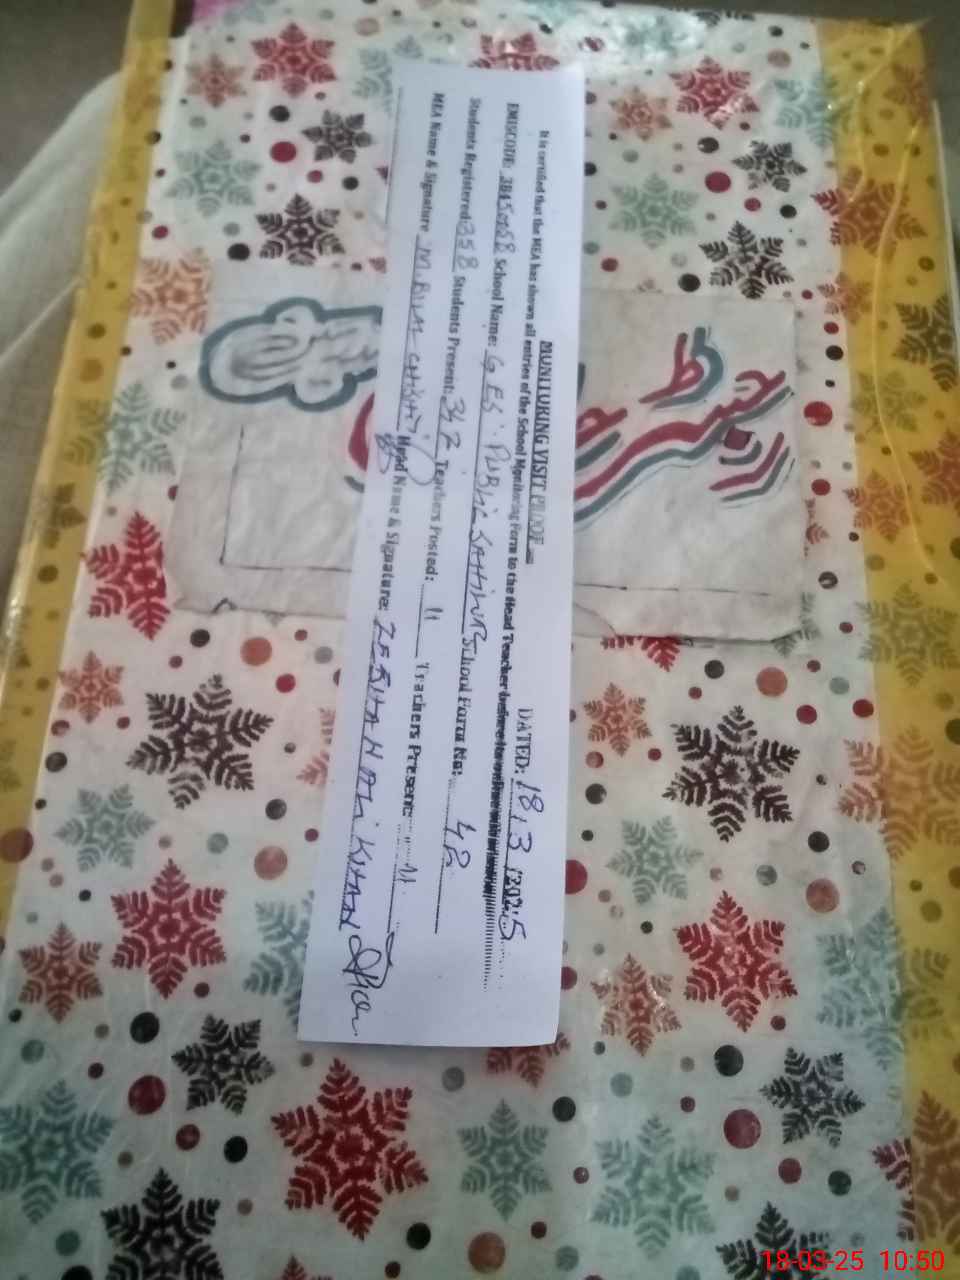 MONITORING VISIT PROOF
DATED: 18/3/2025
It is certified that the MEA has shown all entries of the School Monitoring Form to the Head Teacher before
EMISCODE: School Name: GES. PUBLIC School Form No: 42
Students Registered: 358 Students Present: 342 Teachers Posted: 11 Teachers Present: 11
MEA Name & Signature M. BILAL CHISHTI Head Name & Signature: ALI KHAN
رجسٹر
18-03-25 10:50